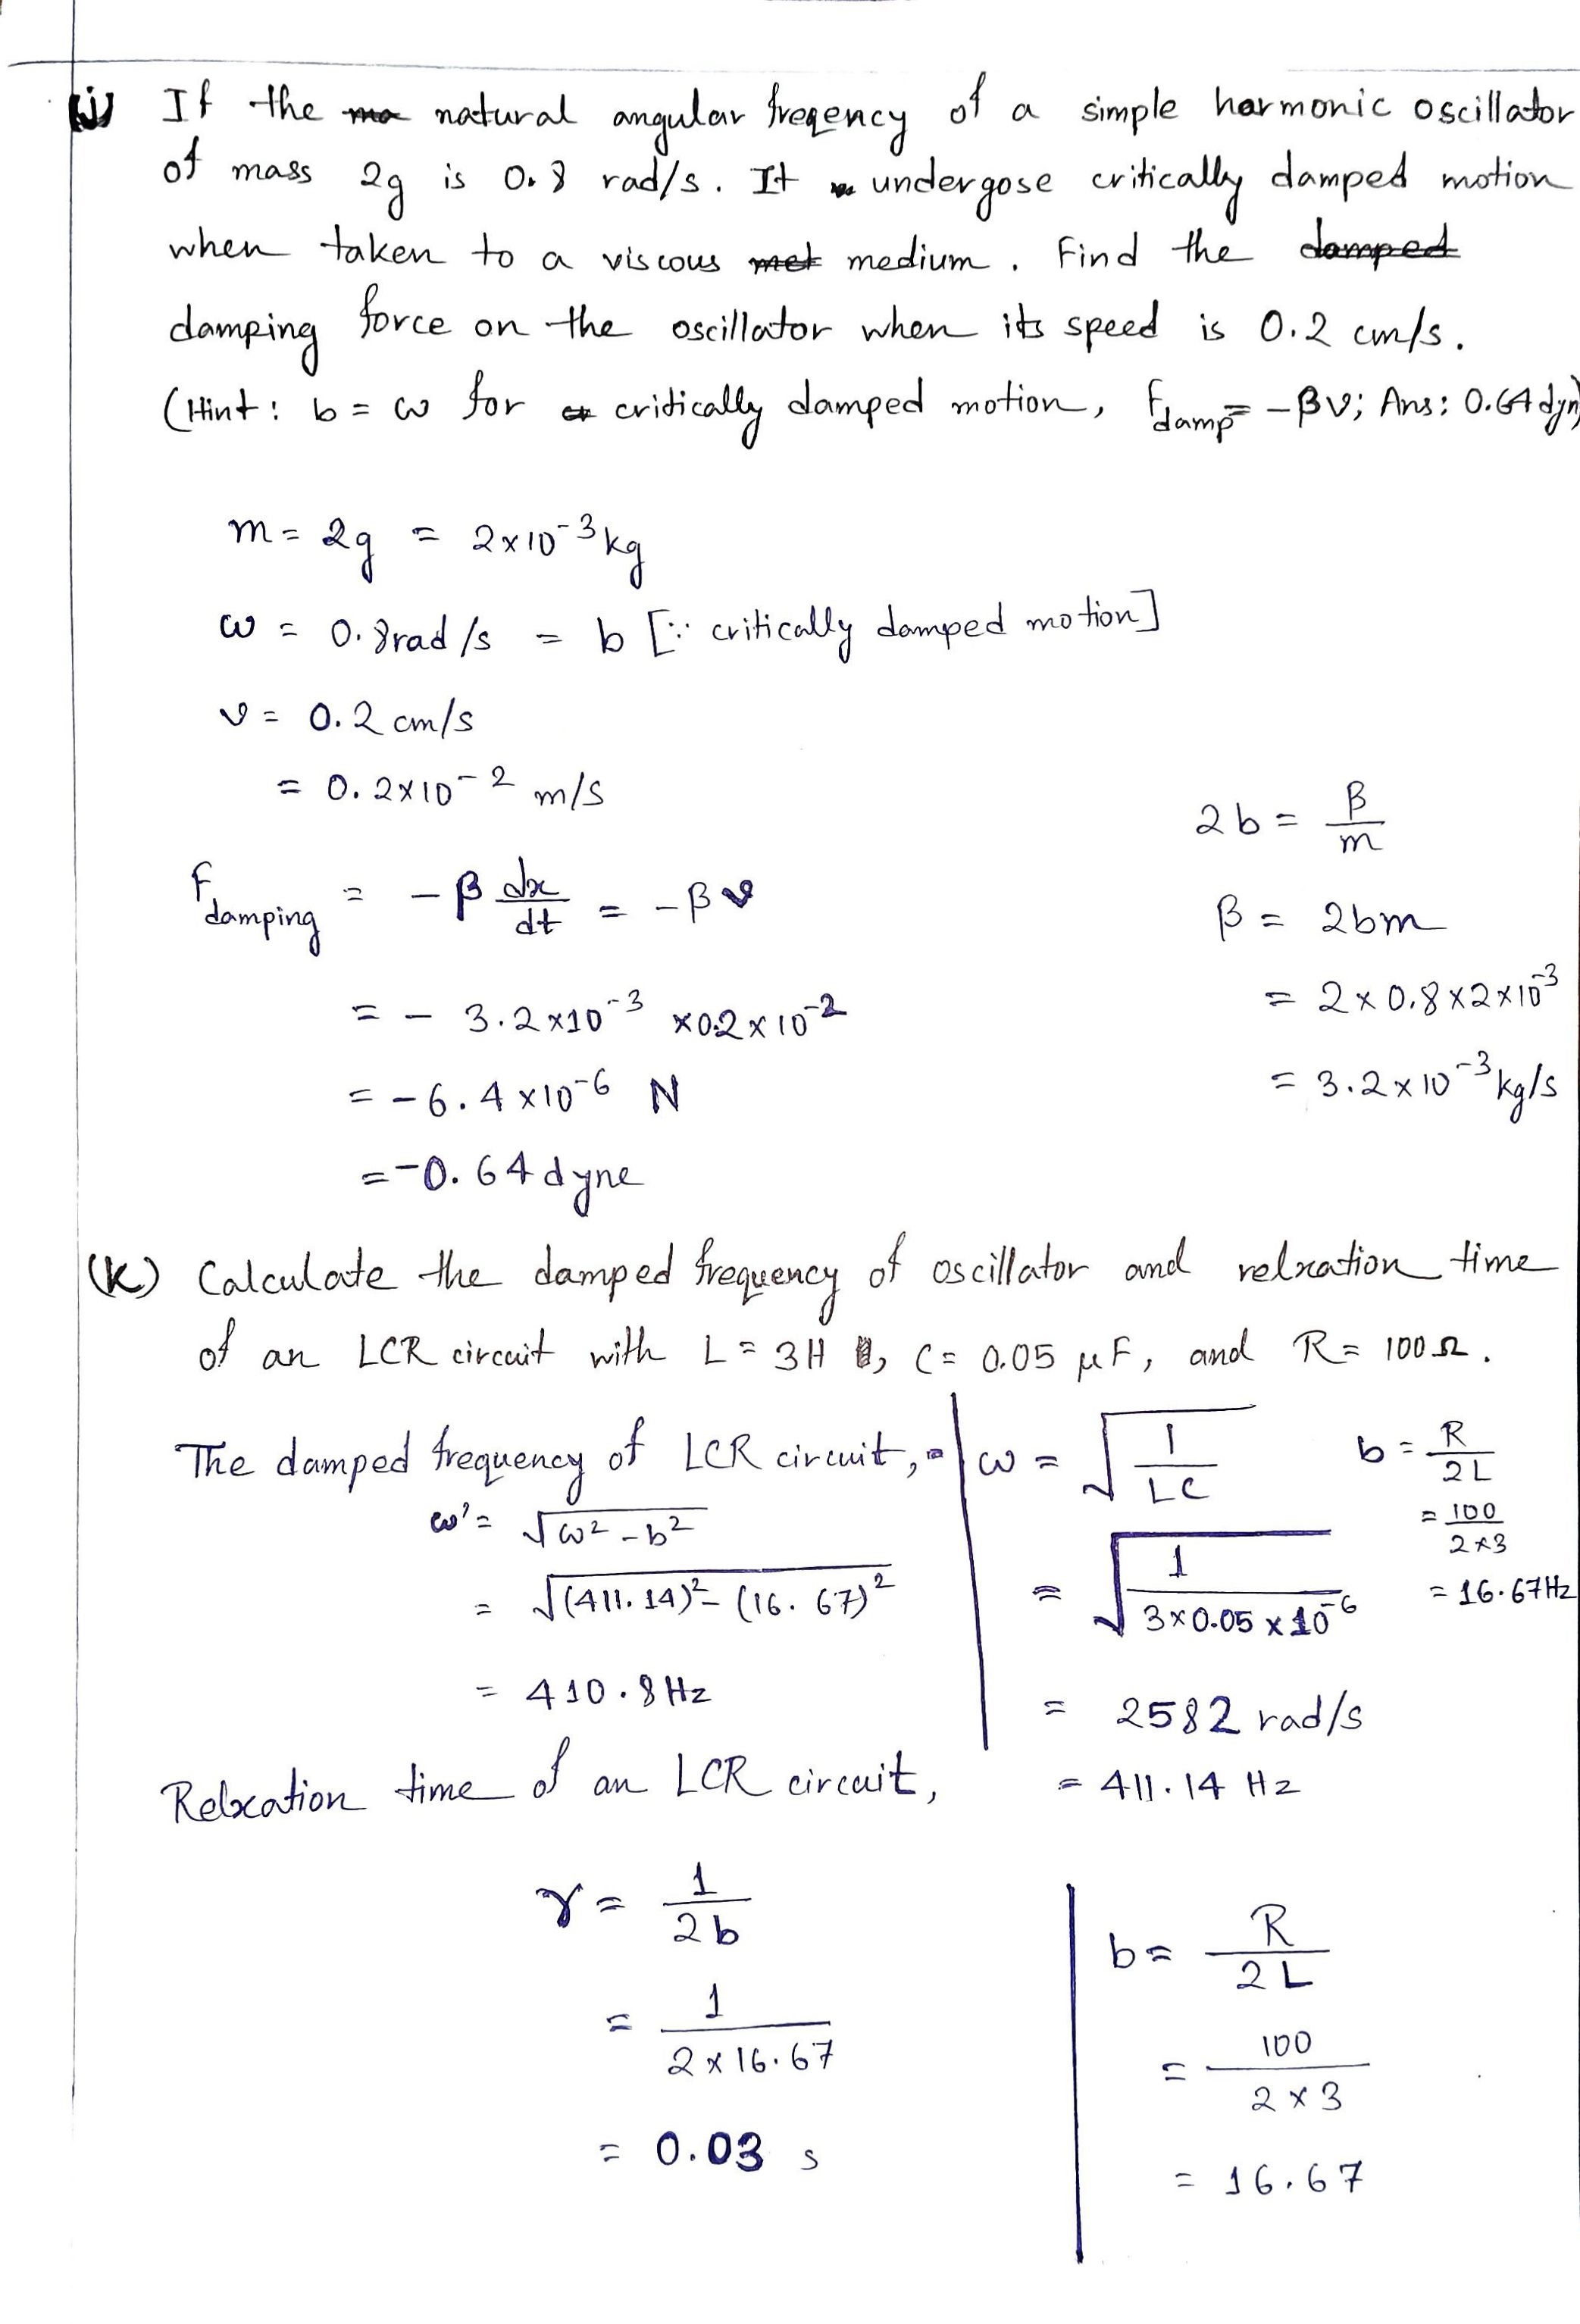 (j) If the natural angular freqency of a simple harmonic oscillator
of mass 2g is 0.8 rad/s. It undergose critically damped motion
when taken to a viscous medium. Find the damped
damping force on the oscillator when its speed is 0.2 cm/s.
(Hint: b = ω for critically damped motion, Fdamp = -βv; Ans: 0.64 dyn)
m = 2g = 2×10⁻³ kg
ω = 0.8rad/s = b [∵ critically damped motion]
v = 0.2 cm/s
= 0.2×10⁻² m/s
2b = β/m
F damping = -β dx/dt = -βv
β = 2bm
= - 3.2×10⁻³ ×0.2×10⁻²
= 2×0.8×2×10⁻³
= -6.4×10⁻⁶ N
= 3.2×10⁻³ kg/s
= -0.64 dyne
(k) Calculate the damped frequency of oscillator and relxation time
of an LCR circuit with L = 3H, C = 0.05 μF, and R = 100Ω.
The damped frequency of LCR circuit,
ω' = √(ω² - b²)
= √((411.14)² - (16.67)²)
= 410.8 Hz
ω = √(1/LC)
= √(1/(3×0.05×10⁻⁶))
= 2582 rad/s
= 411.14 Hz
b = R/2L
= 100/(2×3)
= 16.67Hz
Relxation time of an LCR circuit,
γ = 1/2b
= 1/(2×16.67)
= 0.03 s
b = R/2L
= 100/(2×3)
= 16.67